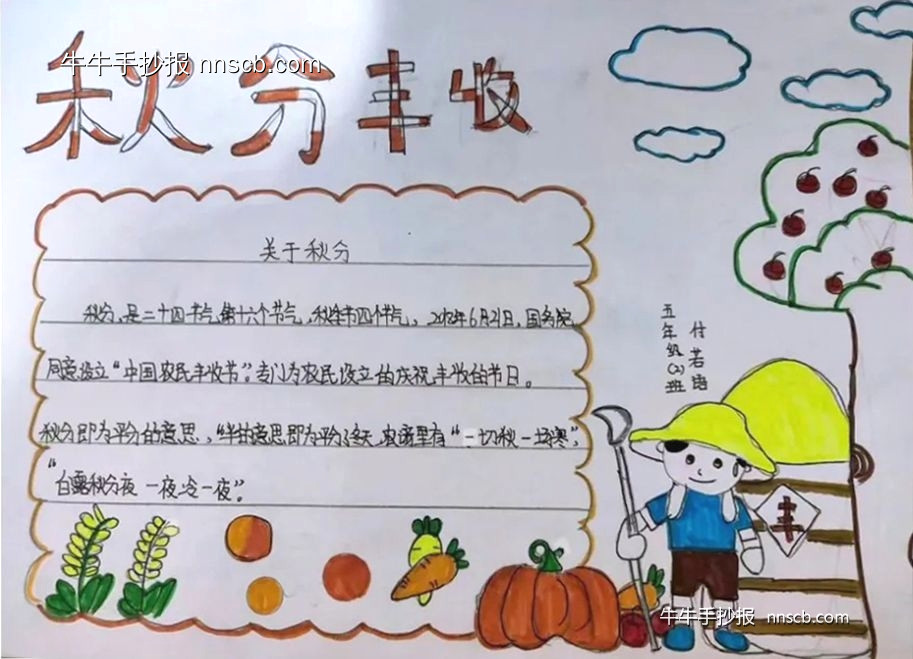 秋分丰收
牛牛手抄报 nnscb.com
关于秋分
秋分,是二十四节气第十六个节气,秋季第四个节气。2018年6月21日,国务院
同意设立“中国农民丰收节”。专门为农民设立的庆祝丰收的节日。
秋分即为平分的意思,“半的意思即为平分冬天,农谚里有“一切秋一场寒”,
“白露秋分夜 一夜冷一夜”。
五年级(2)班
付若
丰
牛牛手抄报 nnscb.com